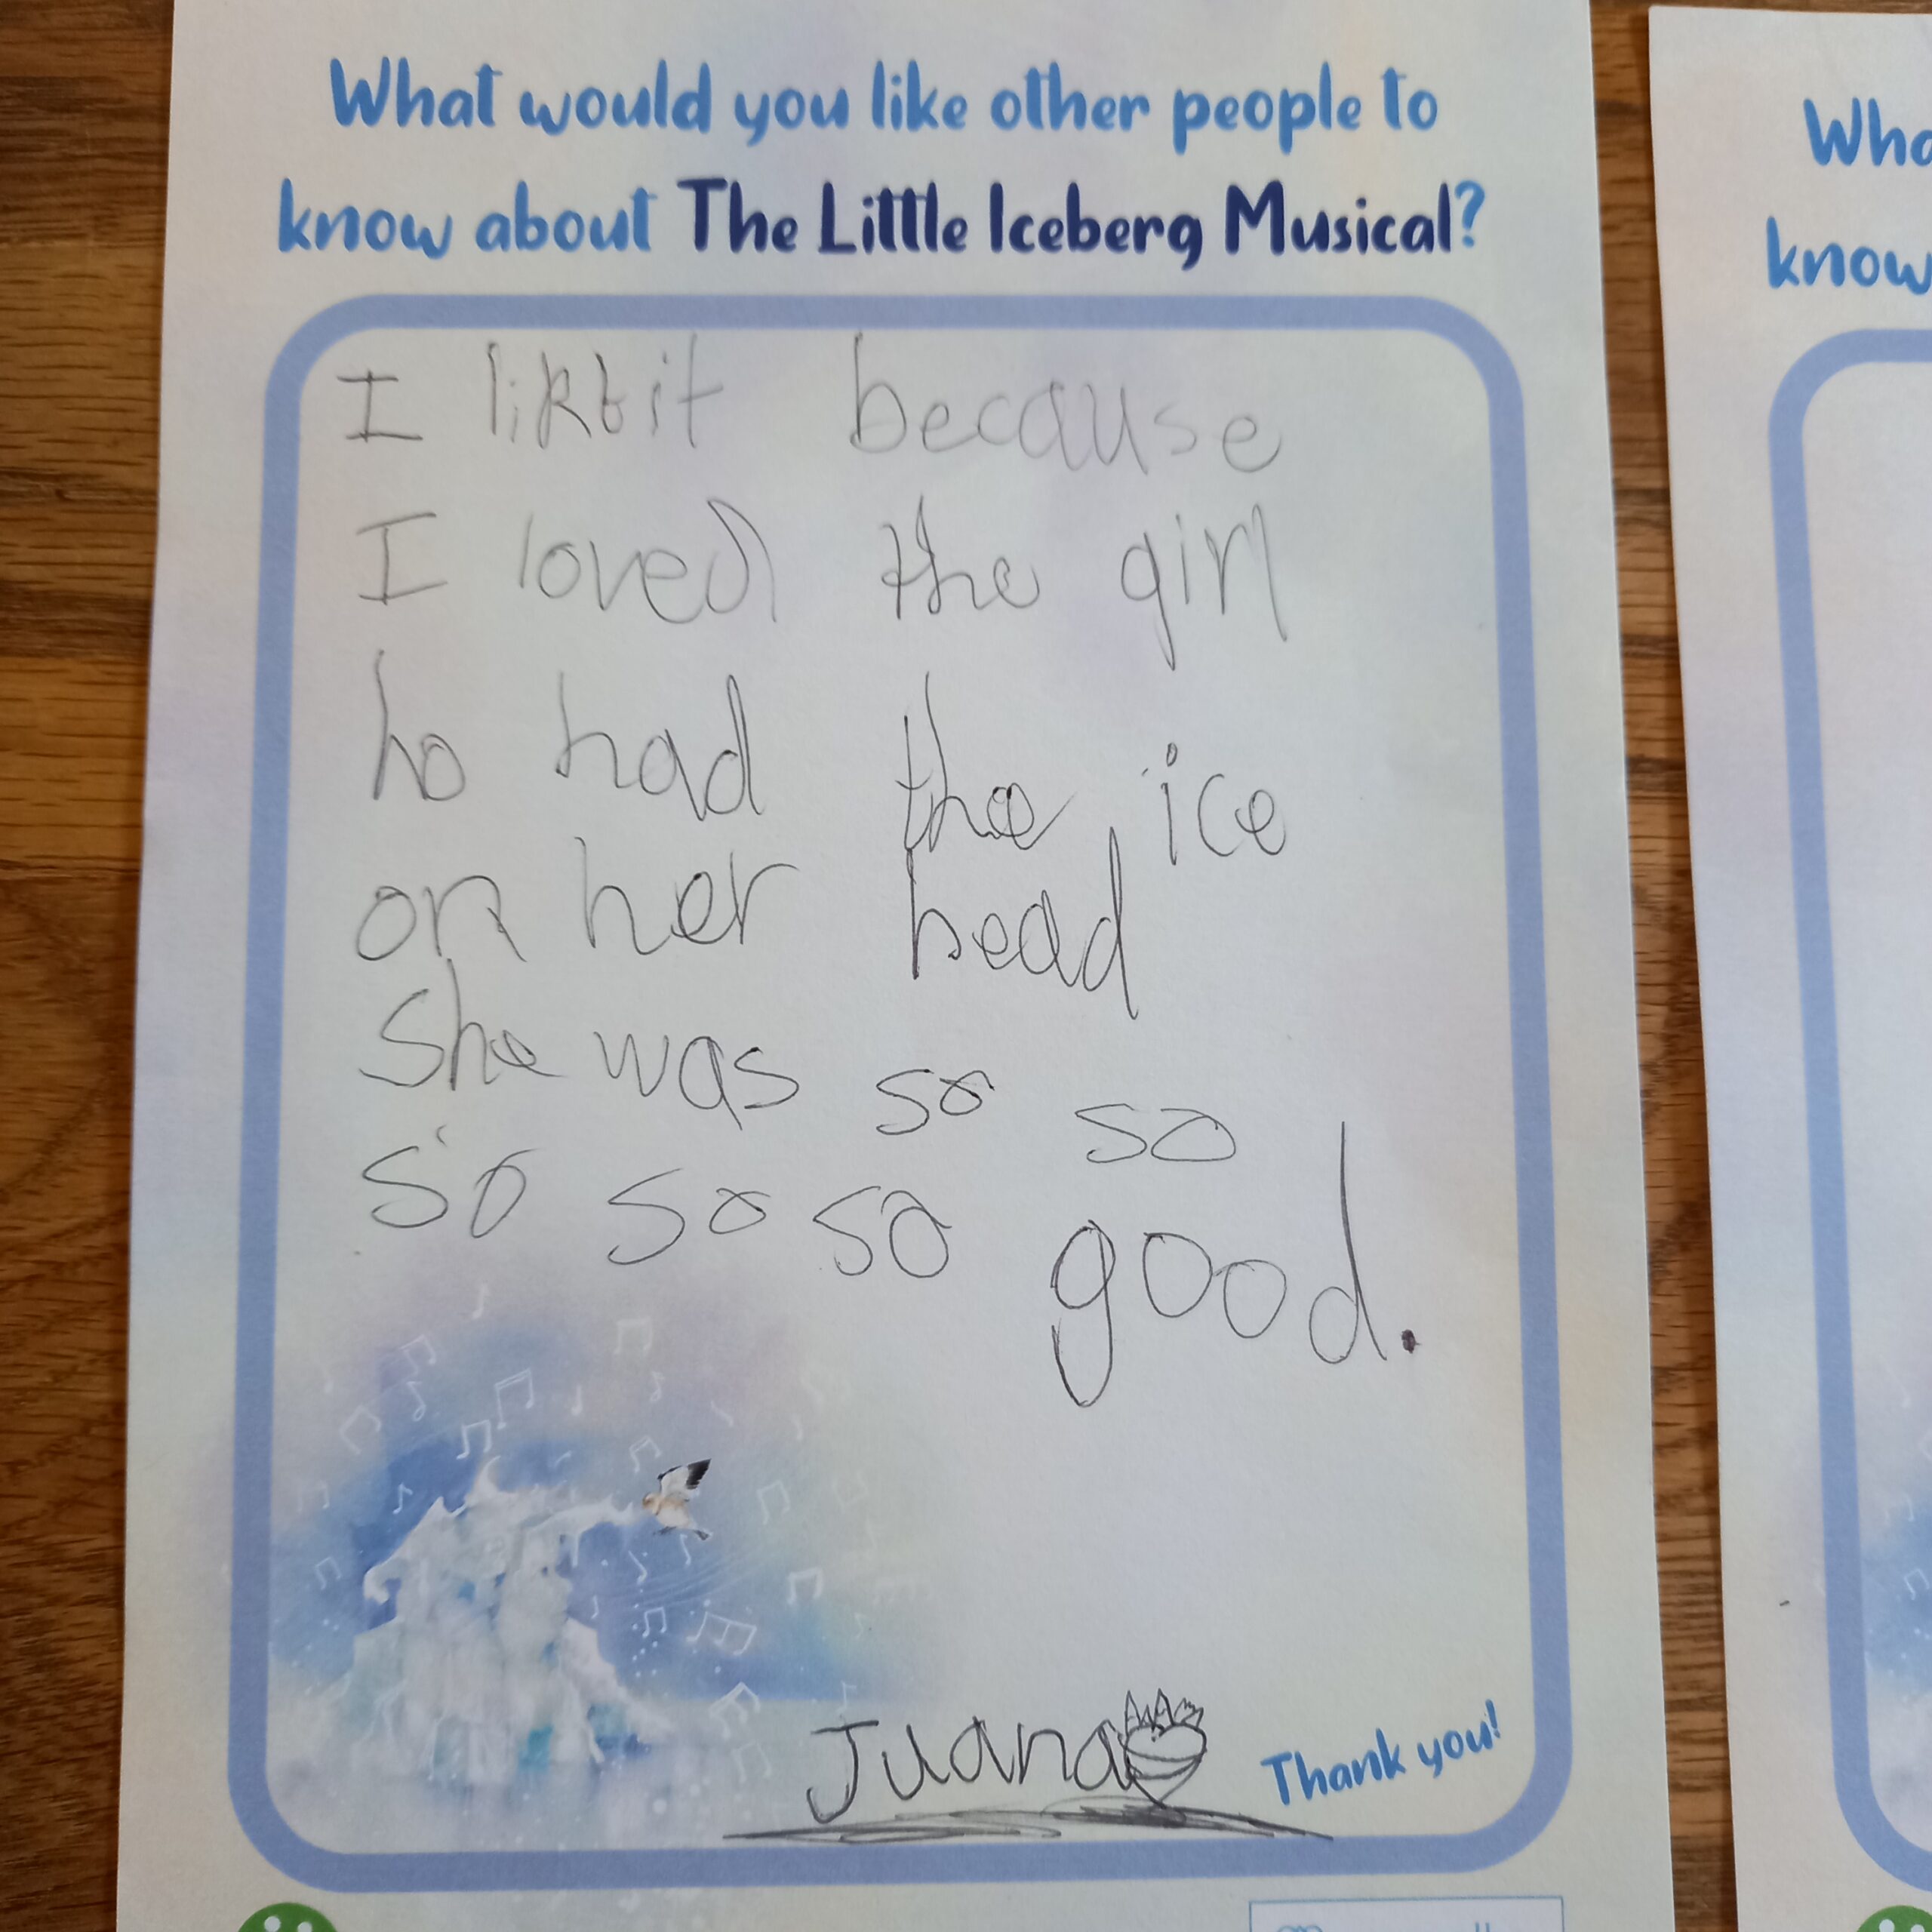 What would you like other people to
know about The Little Iceberg Musical?
I likt it because
I loved the girl
ho had the ice
on her head
She was so so
so so so good.
Juana
Thank you!
Wha
know